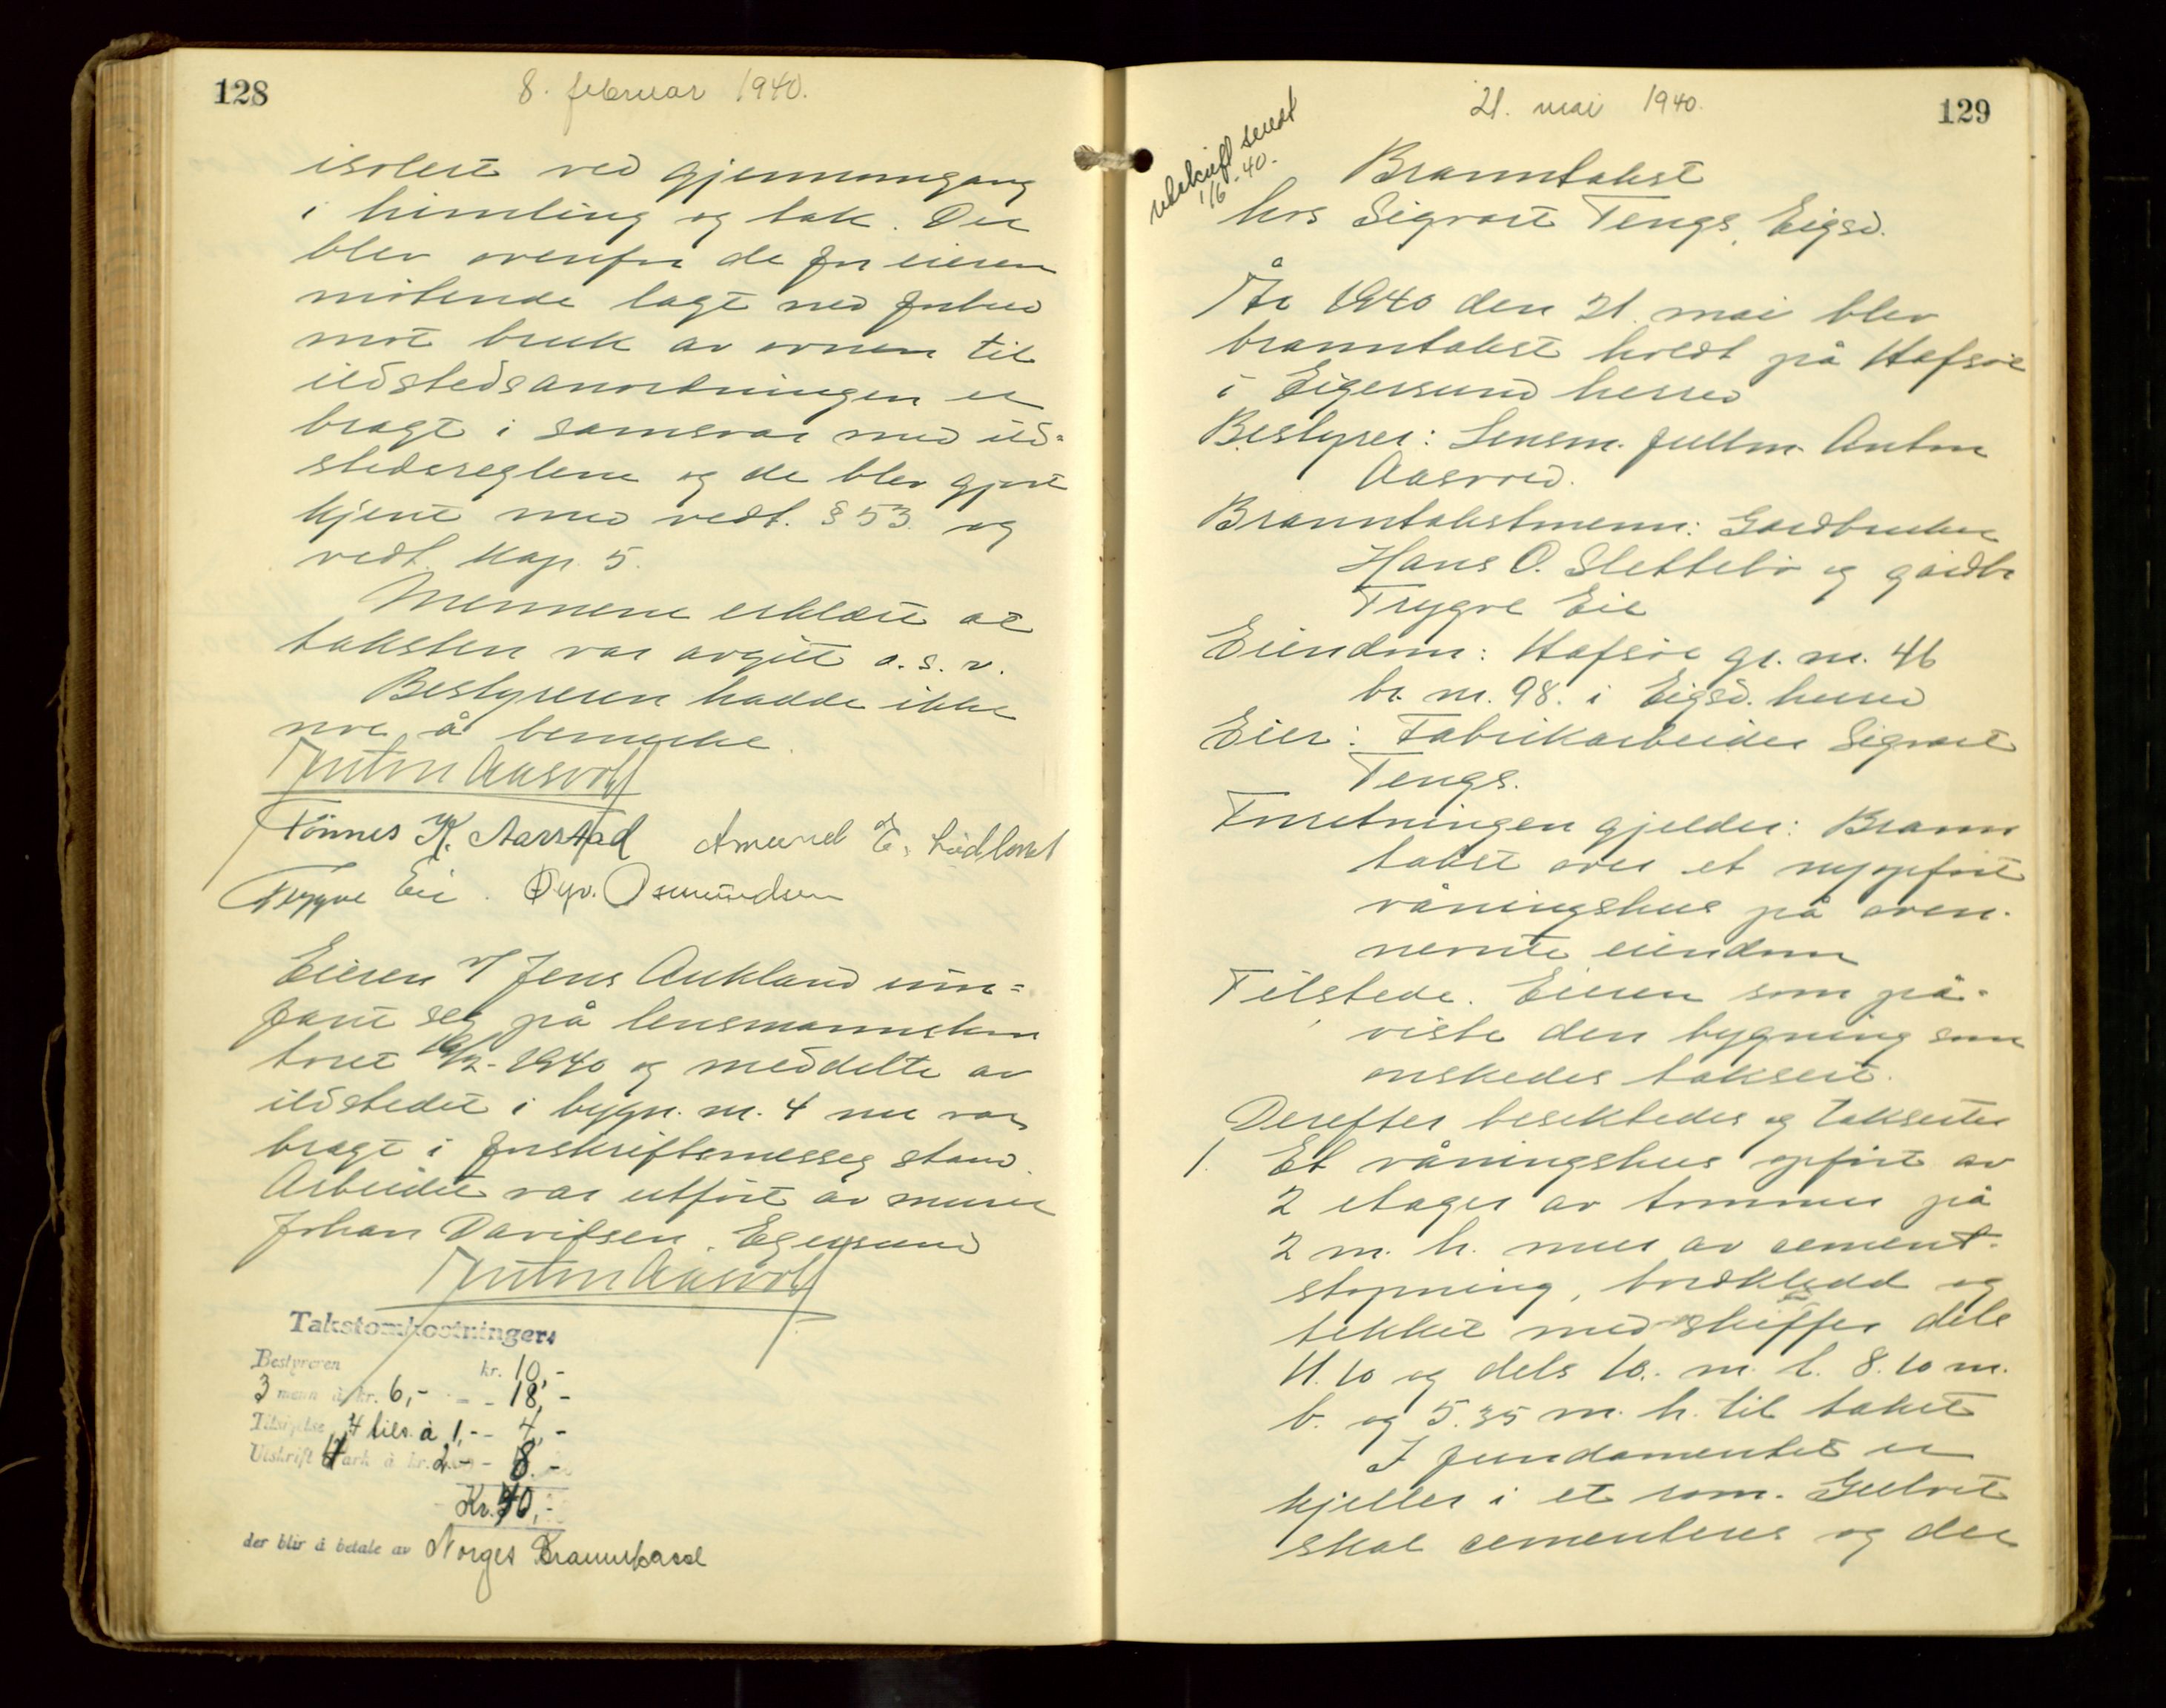 128
8. februar 1940.
isolert ved gjennomgang
i himling og tak. Det
blev ovenfor de for eieren
møtende lagt ned forbud
mot bruk av ovnen til
ildstedsanordningen er
bragt i samsvar med ild=
stedsreglene og de blev gjort
kjent med vedt. § 53 og
vedt. kap. 5.
Mennene erklært at
taksten var avgitt o.s.v.
Bestyreren hadde ikke
noe å bemerke.
Anton Aasvold
Tönnes K. Aarstad Amund E.
Trygve Eie. Osmundsen
Eieren v/ Jens Aukland inn=
fant seg på lensmannskon
toret 19/2-1940 og meddelte av
ildstedet i bygn. nr. 4 nu var
bragt i forskriftsmesseg stand.
Arbeidet var utført av murer
Johan Davidsen, Egersund
Anton Aasvold
Takstomkostninger:
Bestyreren kr. 10,-
3 menn à kr. 6,- - 18,-
Tilsigelse 4 tils. à 1,- - 4,-
Utskrift 4 ark à kr. 2,- - 8.-
Kr. 40,-
der blir å betale av Norges Brannkasse
21. mai 1940.
129
utskrift sendt
1/6-40.
Branntakst
hos Sigvart Tengs, Eigsd.
År 1940 den 21. mai blev
branntakst holdt på Hafsöe
i Eigersund herred
Bestyrer: Lensm. fullm. Anton
Aasvold.
Branntakstmenn: Gardbruker
Hans O. Slettebö og gardbr
Trygve Eie
Eiendom: Hafsöe gr. nr. 46
br. nr. 98. i Eigsd. herred
Eier: Fabrikarbeider Sigvart
Tengs.
Forretningen gjelder: Brann
takst over et nyoppført
våningshus på oven-
nemte eiendom
Tilstede. Eieren som på-
viste den bygning som
ønskedes taksert.
Derefter besiktedes og takserter
1. Et våningshus opført av
2 etager av tømmer på
2 m. h. mur av cement-
støpning, bordkledd og
tekket med skiffer dels
11.10 og dels 10.- m. l. 8.10 m.
b. og 5.35 m. h. til taket
I fundamentet er
kjeller i et rom. Gulvet
skal cementeres og der